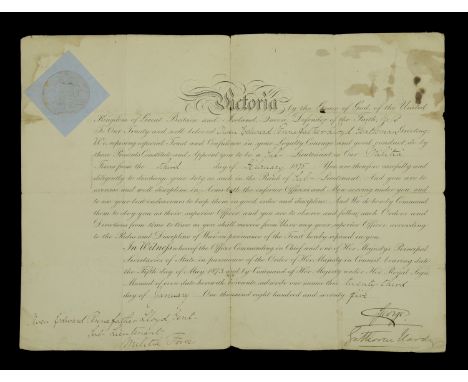 Victoria by the Grace of God, of the United
Kingdom of Great Britain and Ireland, Queen, Defender of the Faith, &c
To Our Trusty and well beloved Owen Edward Bonnefather Lloyd Gentleman Greeting
We reposing especial Trust and Confidence in your Loyalty Courage and good conduct do by
these Presents Constitute and Appoint you to be a Sub-Lieutenant in Our Militia
Forces from the Third day of February 1875. You are therefore carefully and
diligently to discharge your duty as such in the Rank of Sub-Lieutenant And you are to
exercise and well discipline in Arms both the inferior Officers and Men serving under you and
to use your best endeavours to keep them in good order and discipline. And We do hereby Command
them to obey you as their superior Officer and you are to observe and follow such Orders and
Directions from time to time as you shall receive from Us or any your superior Officer according
to the Rules and Discipline of War in pursuance of the Trust hereby reposed in you.
In Witness whereof the Officer Commanding in Chief and one of Her Majesty's Principal
Secretaries of State in pursuance of the Order of Her Majesty in Council bearing date
the Fifth day of May 1873 and by Command of Her Majesty under Her Royal Sign
Manual of even date herewith hereunto subscribe our names this twenty third
day of January One thousand eight hundred and seventy five
George
Gathorne Hardy
Owen Edward Lloyd Gent.
Sub-Lieutenant
Militia Force